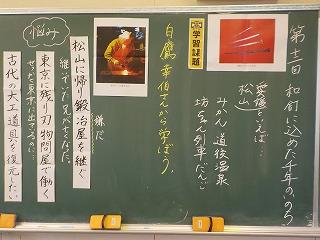 第十二回 和釘に込めた千年のいのち
愛媛といえば…
松山
みかん 道後温泉
坊ちゃん列車 だんご
学習課題
白鷹幸伯さんから学ぼう。
嫌だ
松山に帰り鍛冶屋を継ぐ
継いでいた兄が亡くなった
東京に残り刃物問屋で働く
せっかく東京に出てきたのに…
古代の大工道具を復元したい
悩み